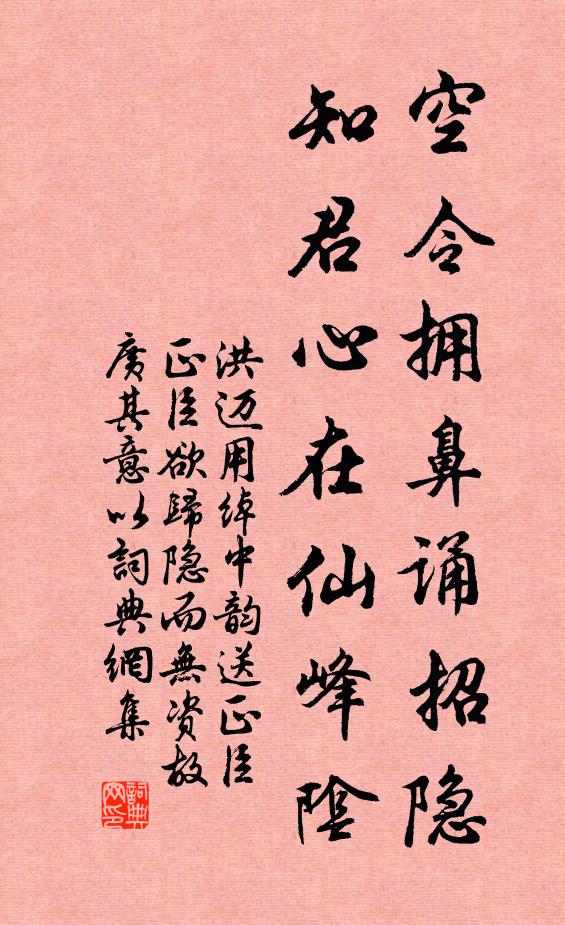 空令拥鼻诵招隐
知君心在仙峰阴
洪迈用绰中韵送正臣
正臣欲歸隐而無资故
广其意以詞典網集
詞典网印